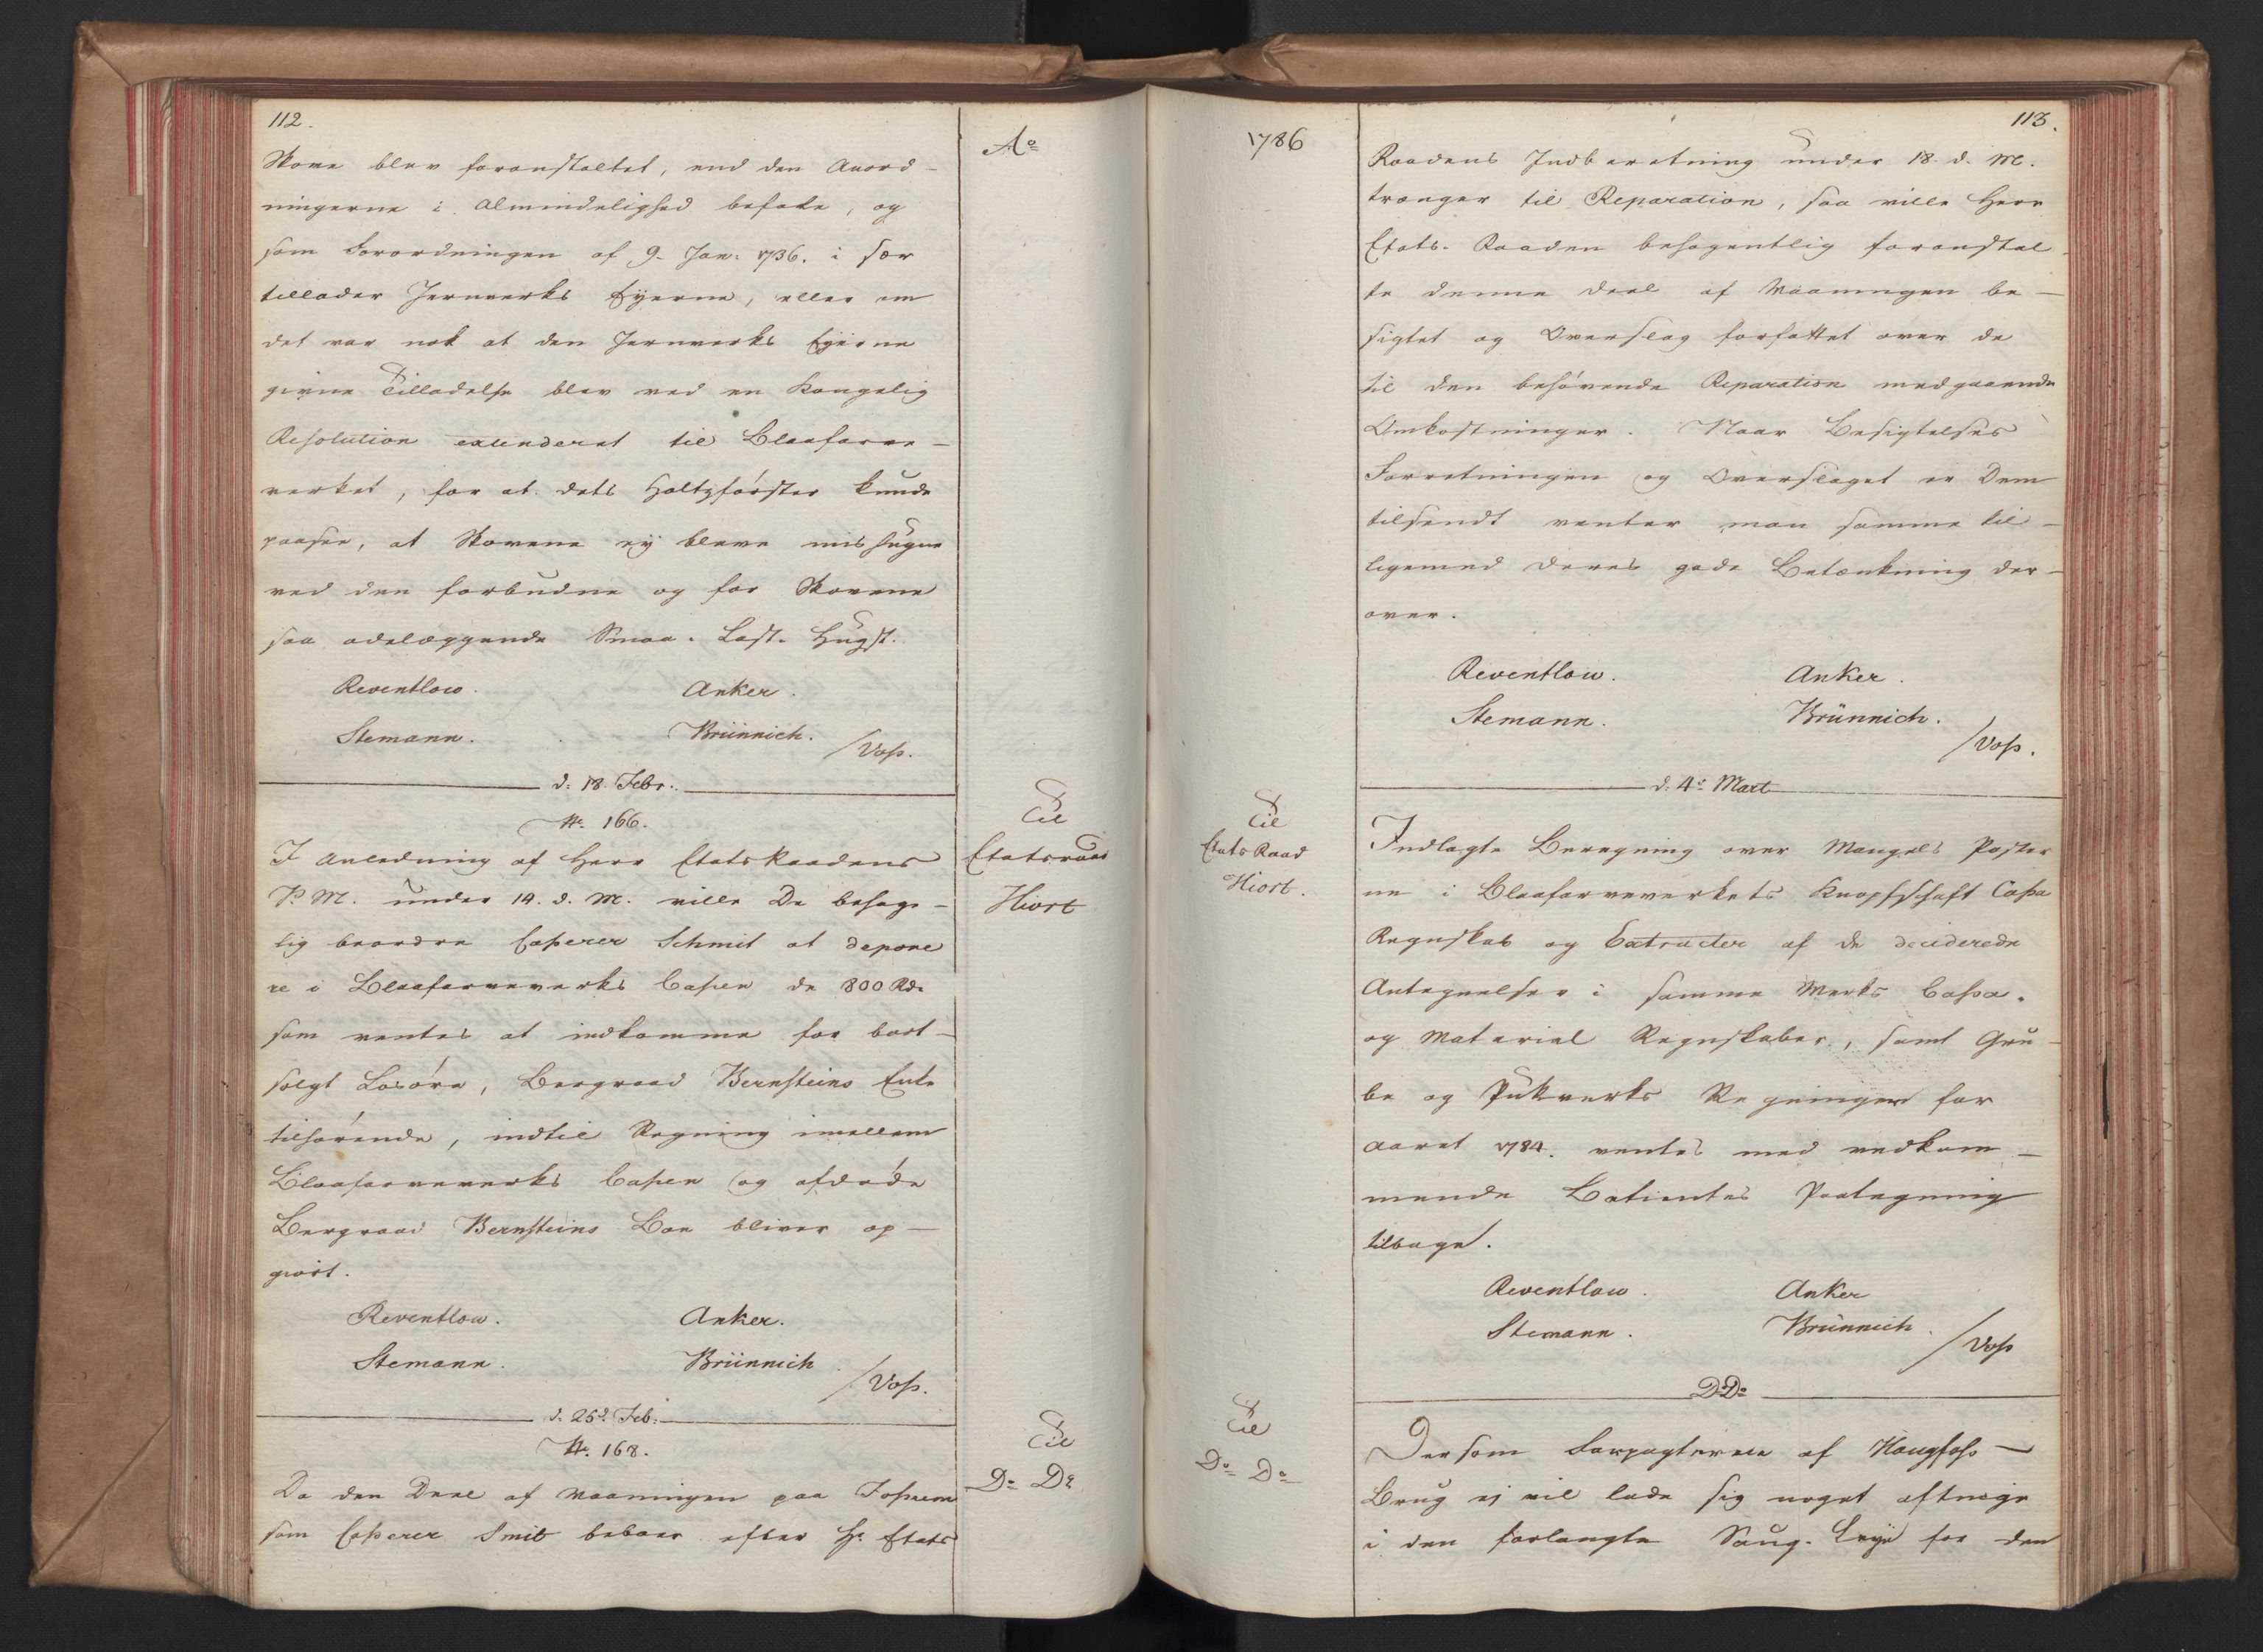 112.
Aº
Skove blev foranstaltet, end den Anord-
ningerne i Almindelighed befale, og
som Forordningen af 9. Jan: 1736. i sær
tillader Jernverks Eyerne, eller om
det var nok at den Jernverks Eyerne
givne Tilladelse blev ved en Kongelig
Resolution extenderet til Blaafarve-
verket, for at dets Holtzförster kunde
paasee, at Skovene ey bleve mishugne
ved den forbudne og for Skovene
saa ødelæggende Smaa-Last-Hugst.
Reventlow. Anker.
Stemann. Brünnich.
/Voss.
d: 18. Febr.
Nº. 166.
Til
Etatsraad
Hiort
I Anledning af Herr EtatsRaadens
P. M. under 14. d. M. ville De behage-
lig beordre Casserer Schmit at depone
re i Blaafarveverks Cassen de 800 Rd.
som ventes at indkomme for bort-
solgt Losøre, Bergraad Bernsteins Enke
tilhørende, indtil Regning imellem
Blaafarveverks Cassen og afdøde
Bergraad Bernsteins Boe bliver op-
giort.
Reventlow. Anker.
Stemann. Brünnich.
/Voss.
d. 25d. Feb:
Nº. 168.
Til
Dº Dº
Da den Deel af Vaaningen paa Fossum
som Casserer Smit beboer efter Hr. Etats
1786
113.
Raadens Indberetning under 18. d. M.
trænger til Reparation, saa ville Herr
Etats-Raaden behagentlig foranstal-
te denne Deel af Vaaningen be-
sigtet og Overslag forfattet over de
til den behøvende Reparation medgaaende
Omkostninger. Naar Besigtelses
Forretningen og Overslaget er Dem
tilsendt venter man samme til-
ligemed Deres gode Betænkning der-
over.
Reventlow. Anker.
Stemann. Brünnich.
/Voss.
d. 4d Mart
Til
EtatsRaad
Hiort.
Indlagte Beregning over Mangels Poster
ne i Blaafarveverkets Knapschaft Cassa
Regnskab og Extracter af de deciderede
Antegnelser i samme Verks Cassa-
og Material Regnskaber, samt Gru-
be og Pukverks Regninger for
Aaret 1784. ventes med vedkom-
mende Betientes Paategning
tilbage.
Reventlow. Anker
Stemann. Brünnich.
/Voss
Dº Dº
Til
Dº Dº
Dersom Forpagterne af Haugfoss-
Brug ej vil lade sig noget aftinge
i den forlangte Saug-Leye for den